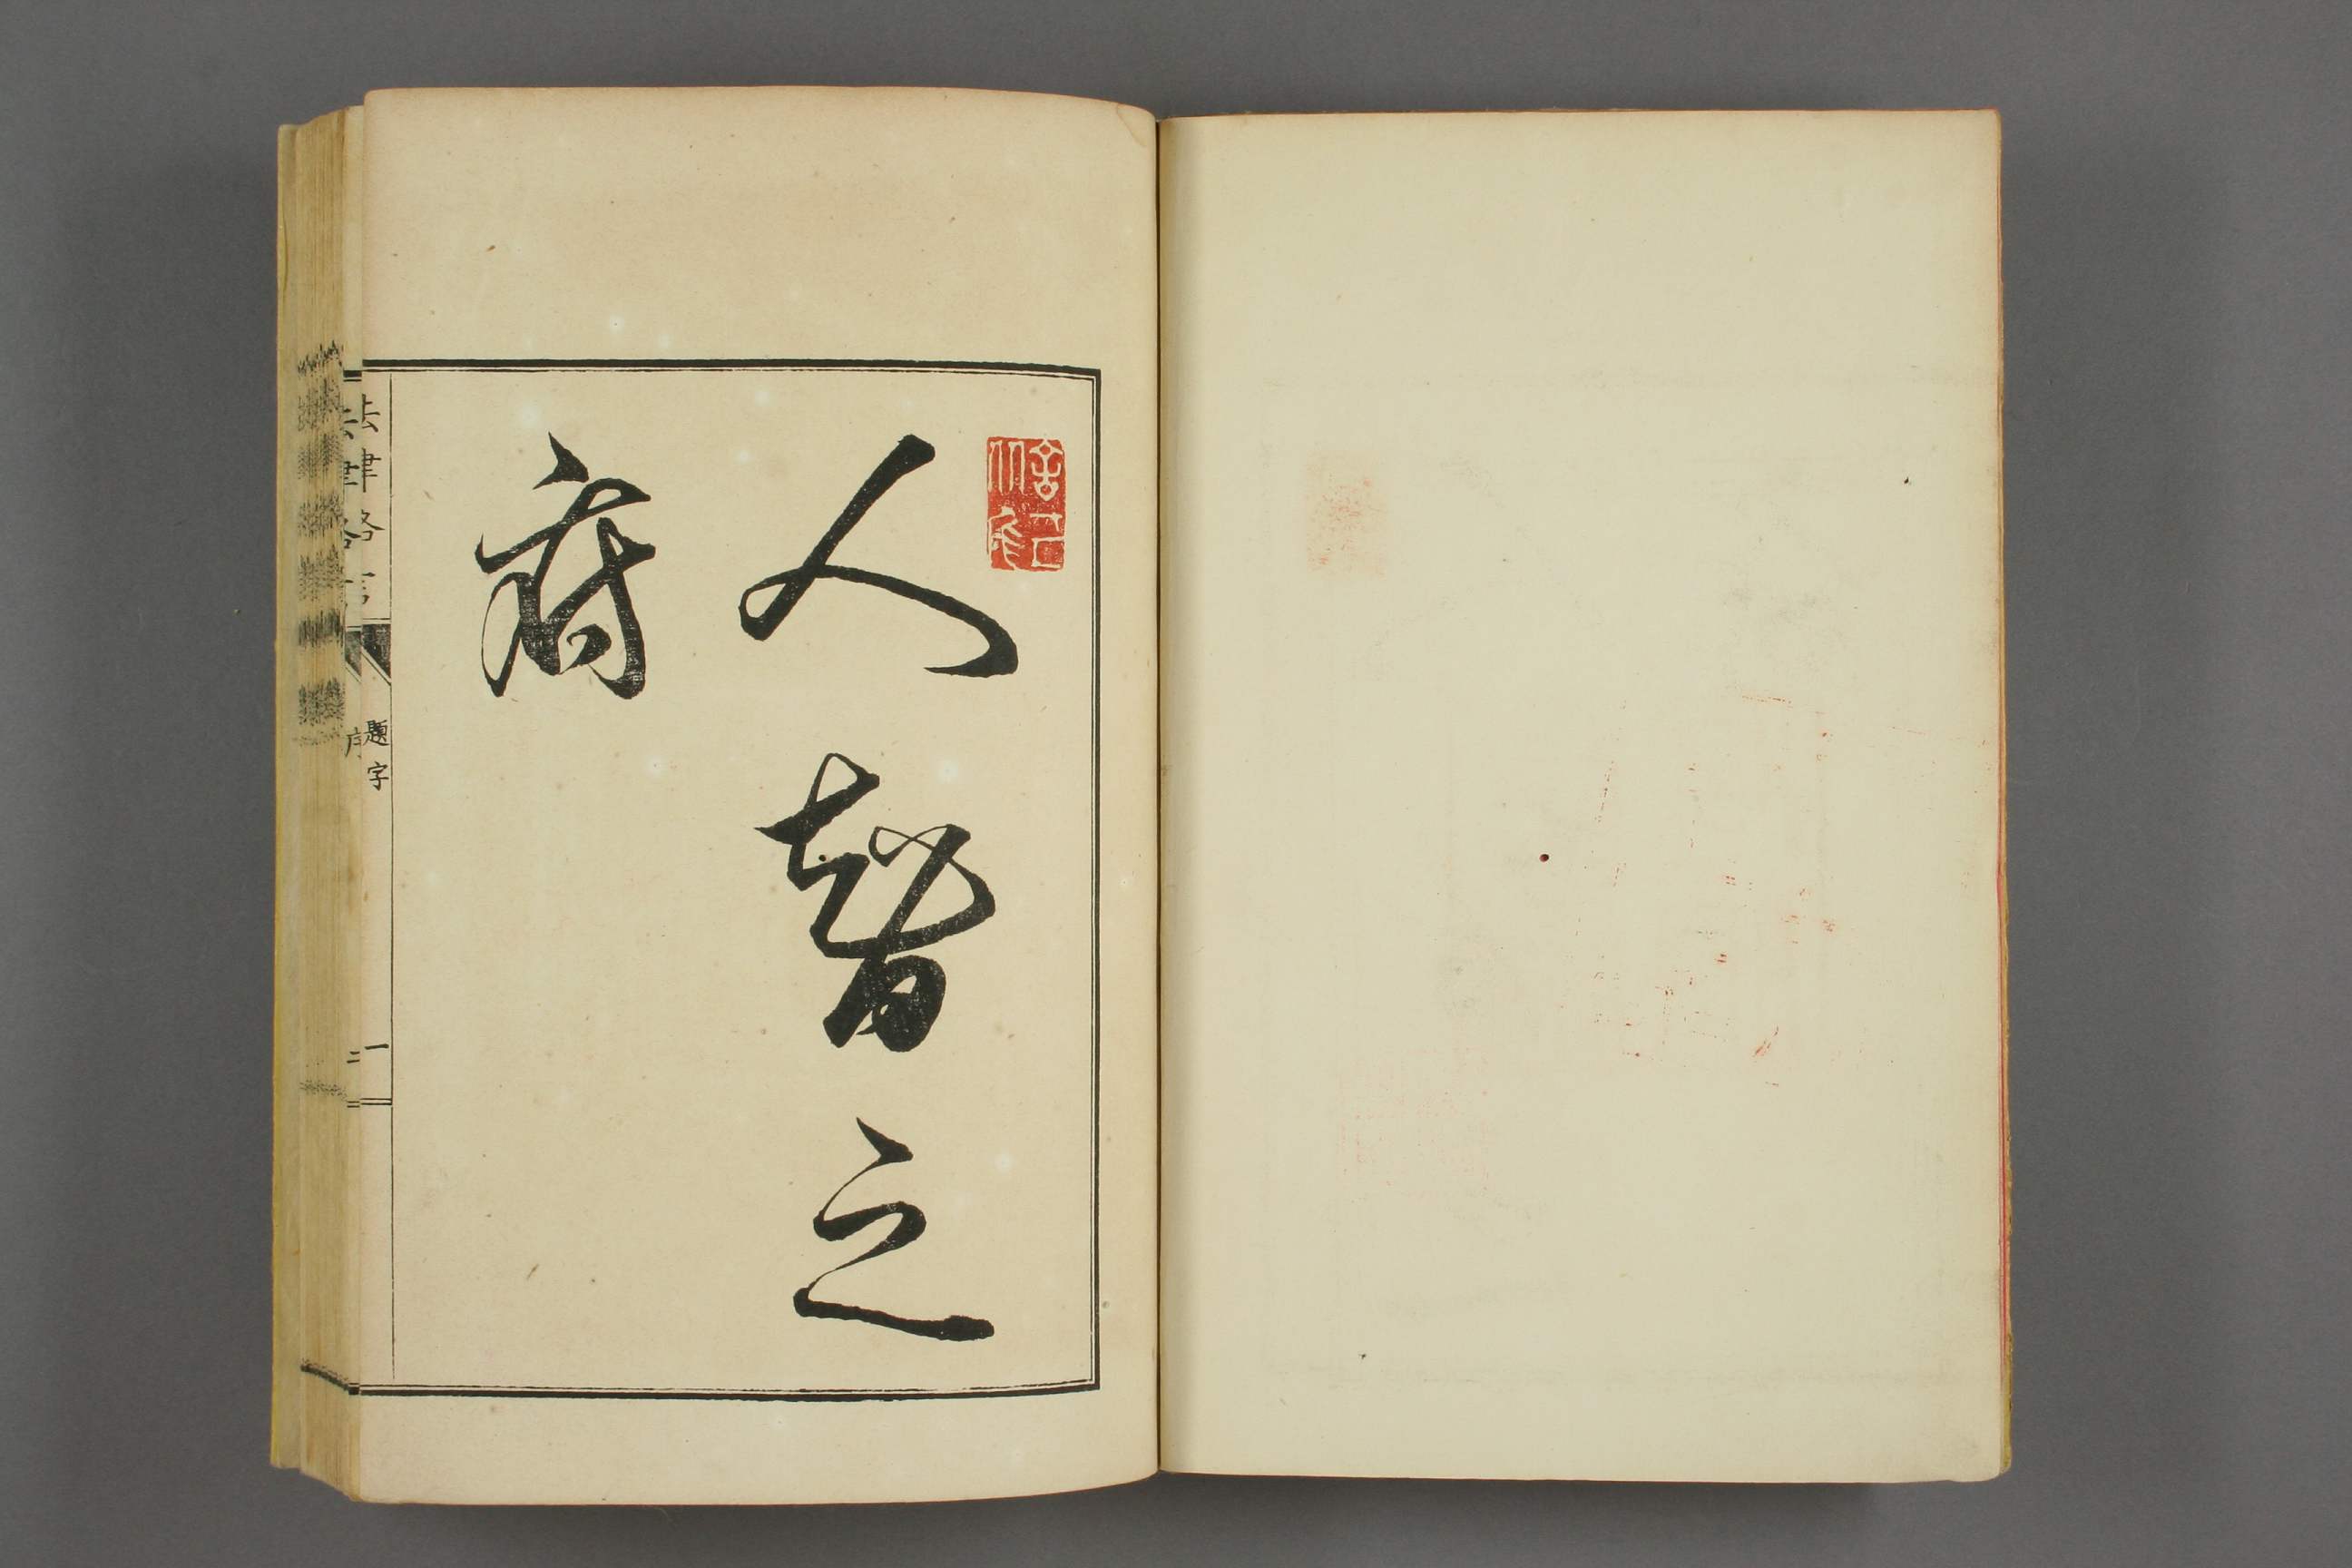 人智之
府
法律格言
題字
一
序
二